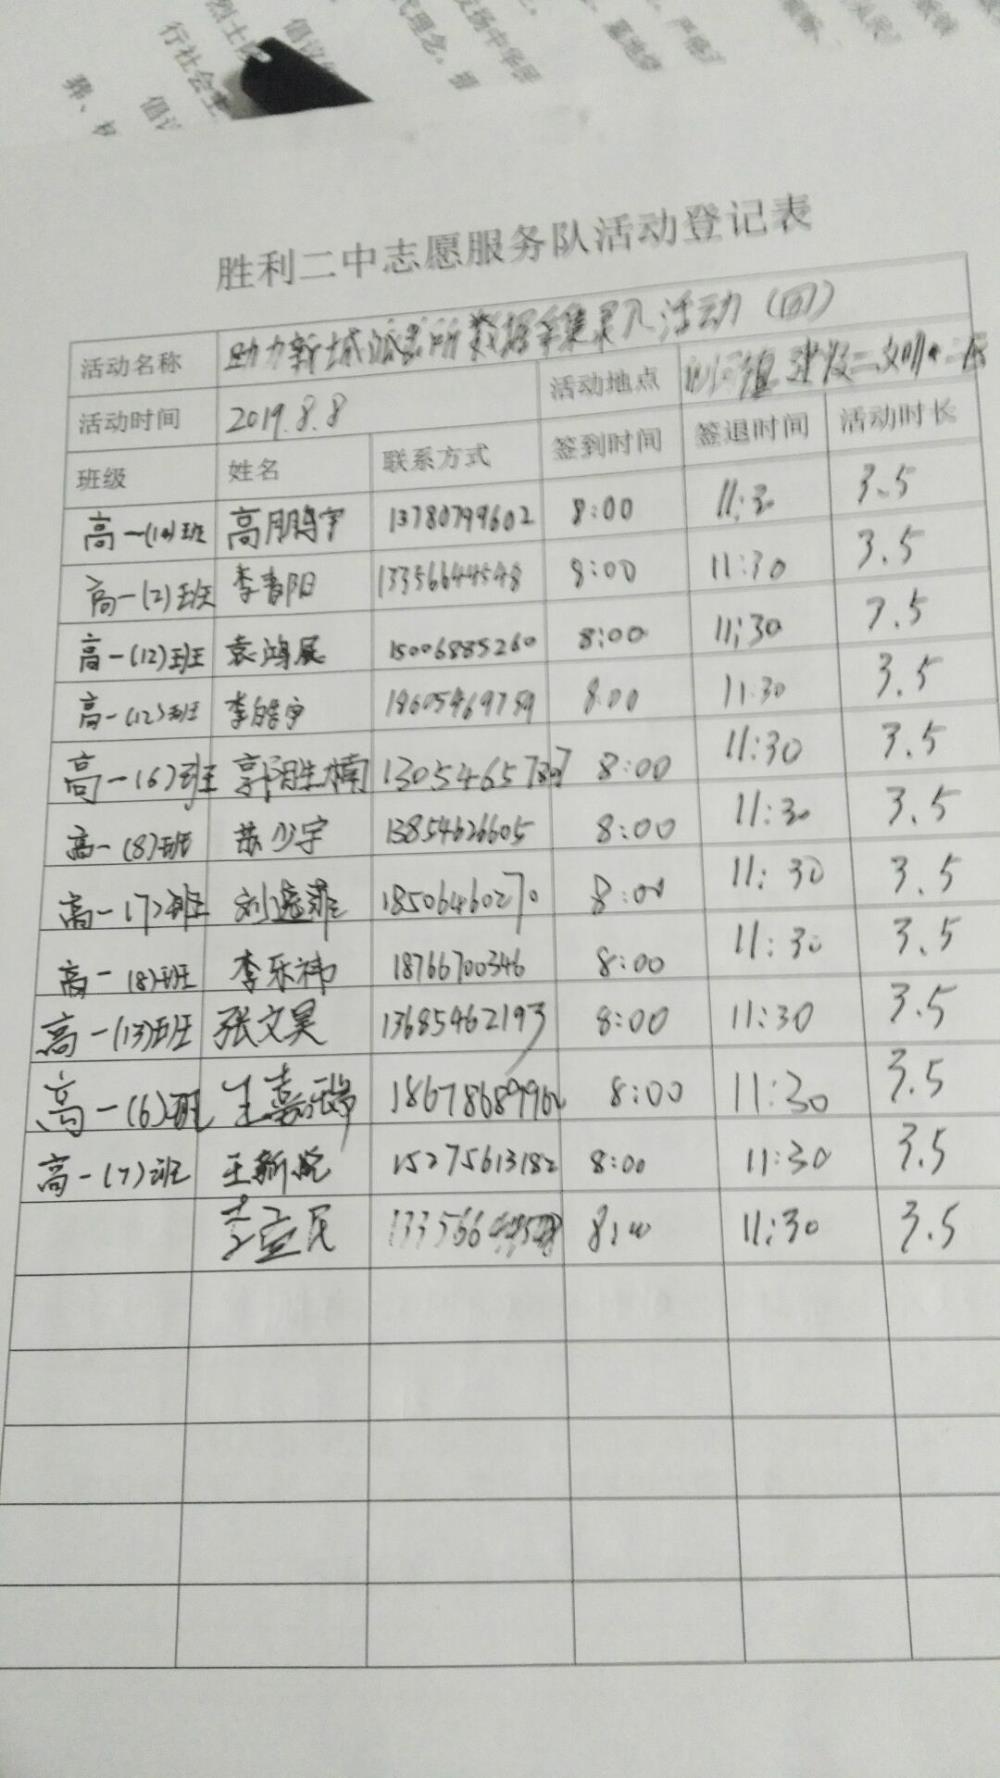 胜利二中志愿服务队活动登记表
活动名称 助力新城派出所数据采集录入活动（四）
活动时间 2019.8.8 活动地点
班级 姓名 联系方式 签到时间 签退时间 活动时长
高一(10)班 高鹏宇 13780799602 8:00 11:30 3.5
高一(2)班 李春阳 13356644548 8:00 11:30 3.5
高一(12)班 袁鸿展 15006885260 8:00 11:30 3.5
高一(12)班 李皓宇 18605469789 8:00 11:30 3.5
高一(6)班 郭胜楠 8:00 11:30 3.5
高一(8)班 苏少宇 13854626605 8:00 11:30 3.5
高一(7)班 刘逸菲 18506460270 8:00 11:30 3.5
高一(8)班 李乐祎 18766700346 8:00 11:30 3.5
高一(13)班 张文昊 13685462193 8:00 11:30 3.5
高一(6)班 生嘉瑞 18678689962 8:00 11:30 3.5
高一(7)班 王新悦 15275613182 8:00 11:30 3.5
李立民 8:00 11:30 3.5